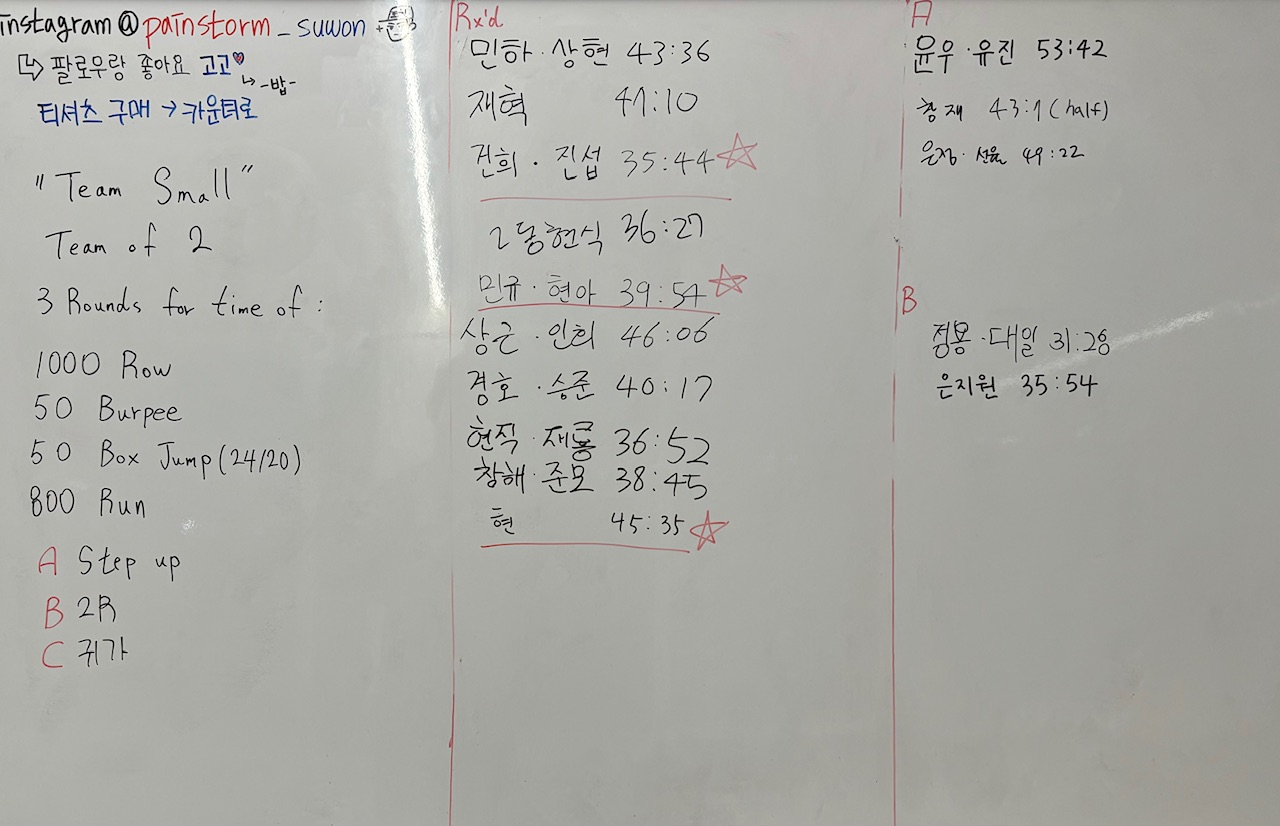 instagram @ painstorm_suwon
팔로우랑 좋아요 고고
-밥-
티셔츠 구매 → 카운터로
"Team Small"
Team of 2
3 Rounds for time of :
1000 Row
50 Burpee
50 Box Jump (24/20)
800 Run
A Step up
B 2R
C 귀가
Rx'd
민하 · 상현 43:36
재혁 41:10
건희 · 진섭 35:44
2동현식 36:27
민규 · 현아 39:54
상근 · 인희 46:06
경호 · 승준 40:17
현직 · 재룡 36:52
창해 · 준모 38:45
현 45:35
A
윤우 · 유진 53:42
창재 43:1 (half)
은정 · 선율 49:22
B
정용 · 대일 31:28
은지원 35:54